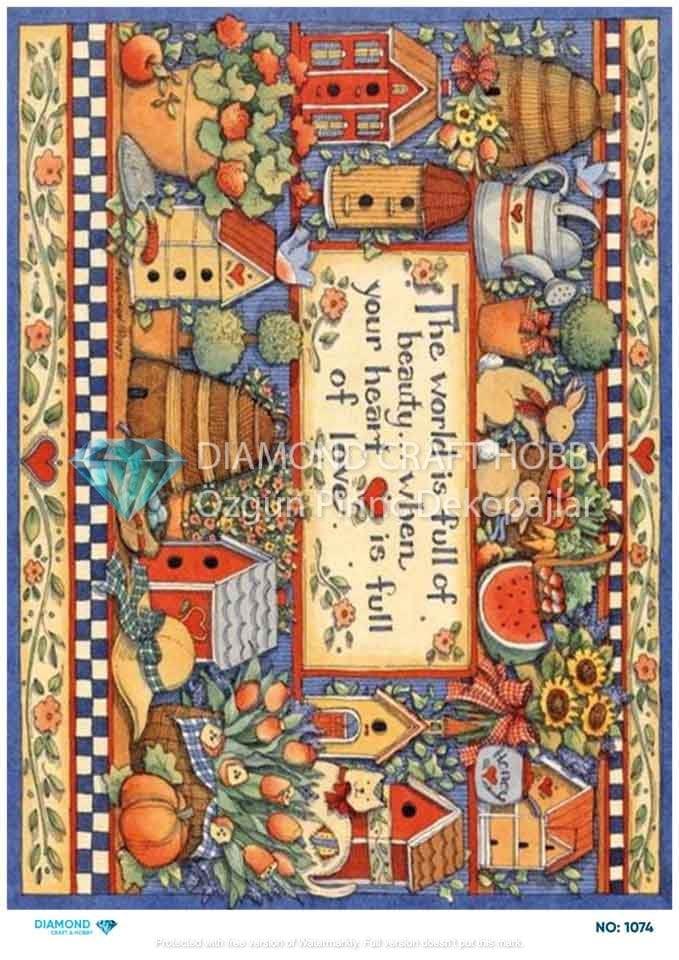 The world is full of
beauty... when
your heart is full
of love.
Honey
DIAMOND CRAFT HOBBY
Özgün Pirinç Dekopajlar
DIAMOND
CRAFT & HOBBY
NO: 1074
Protected with free version of Watermarkly. Full version doesn't put this mark.